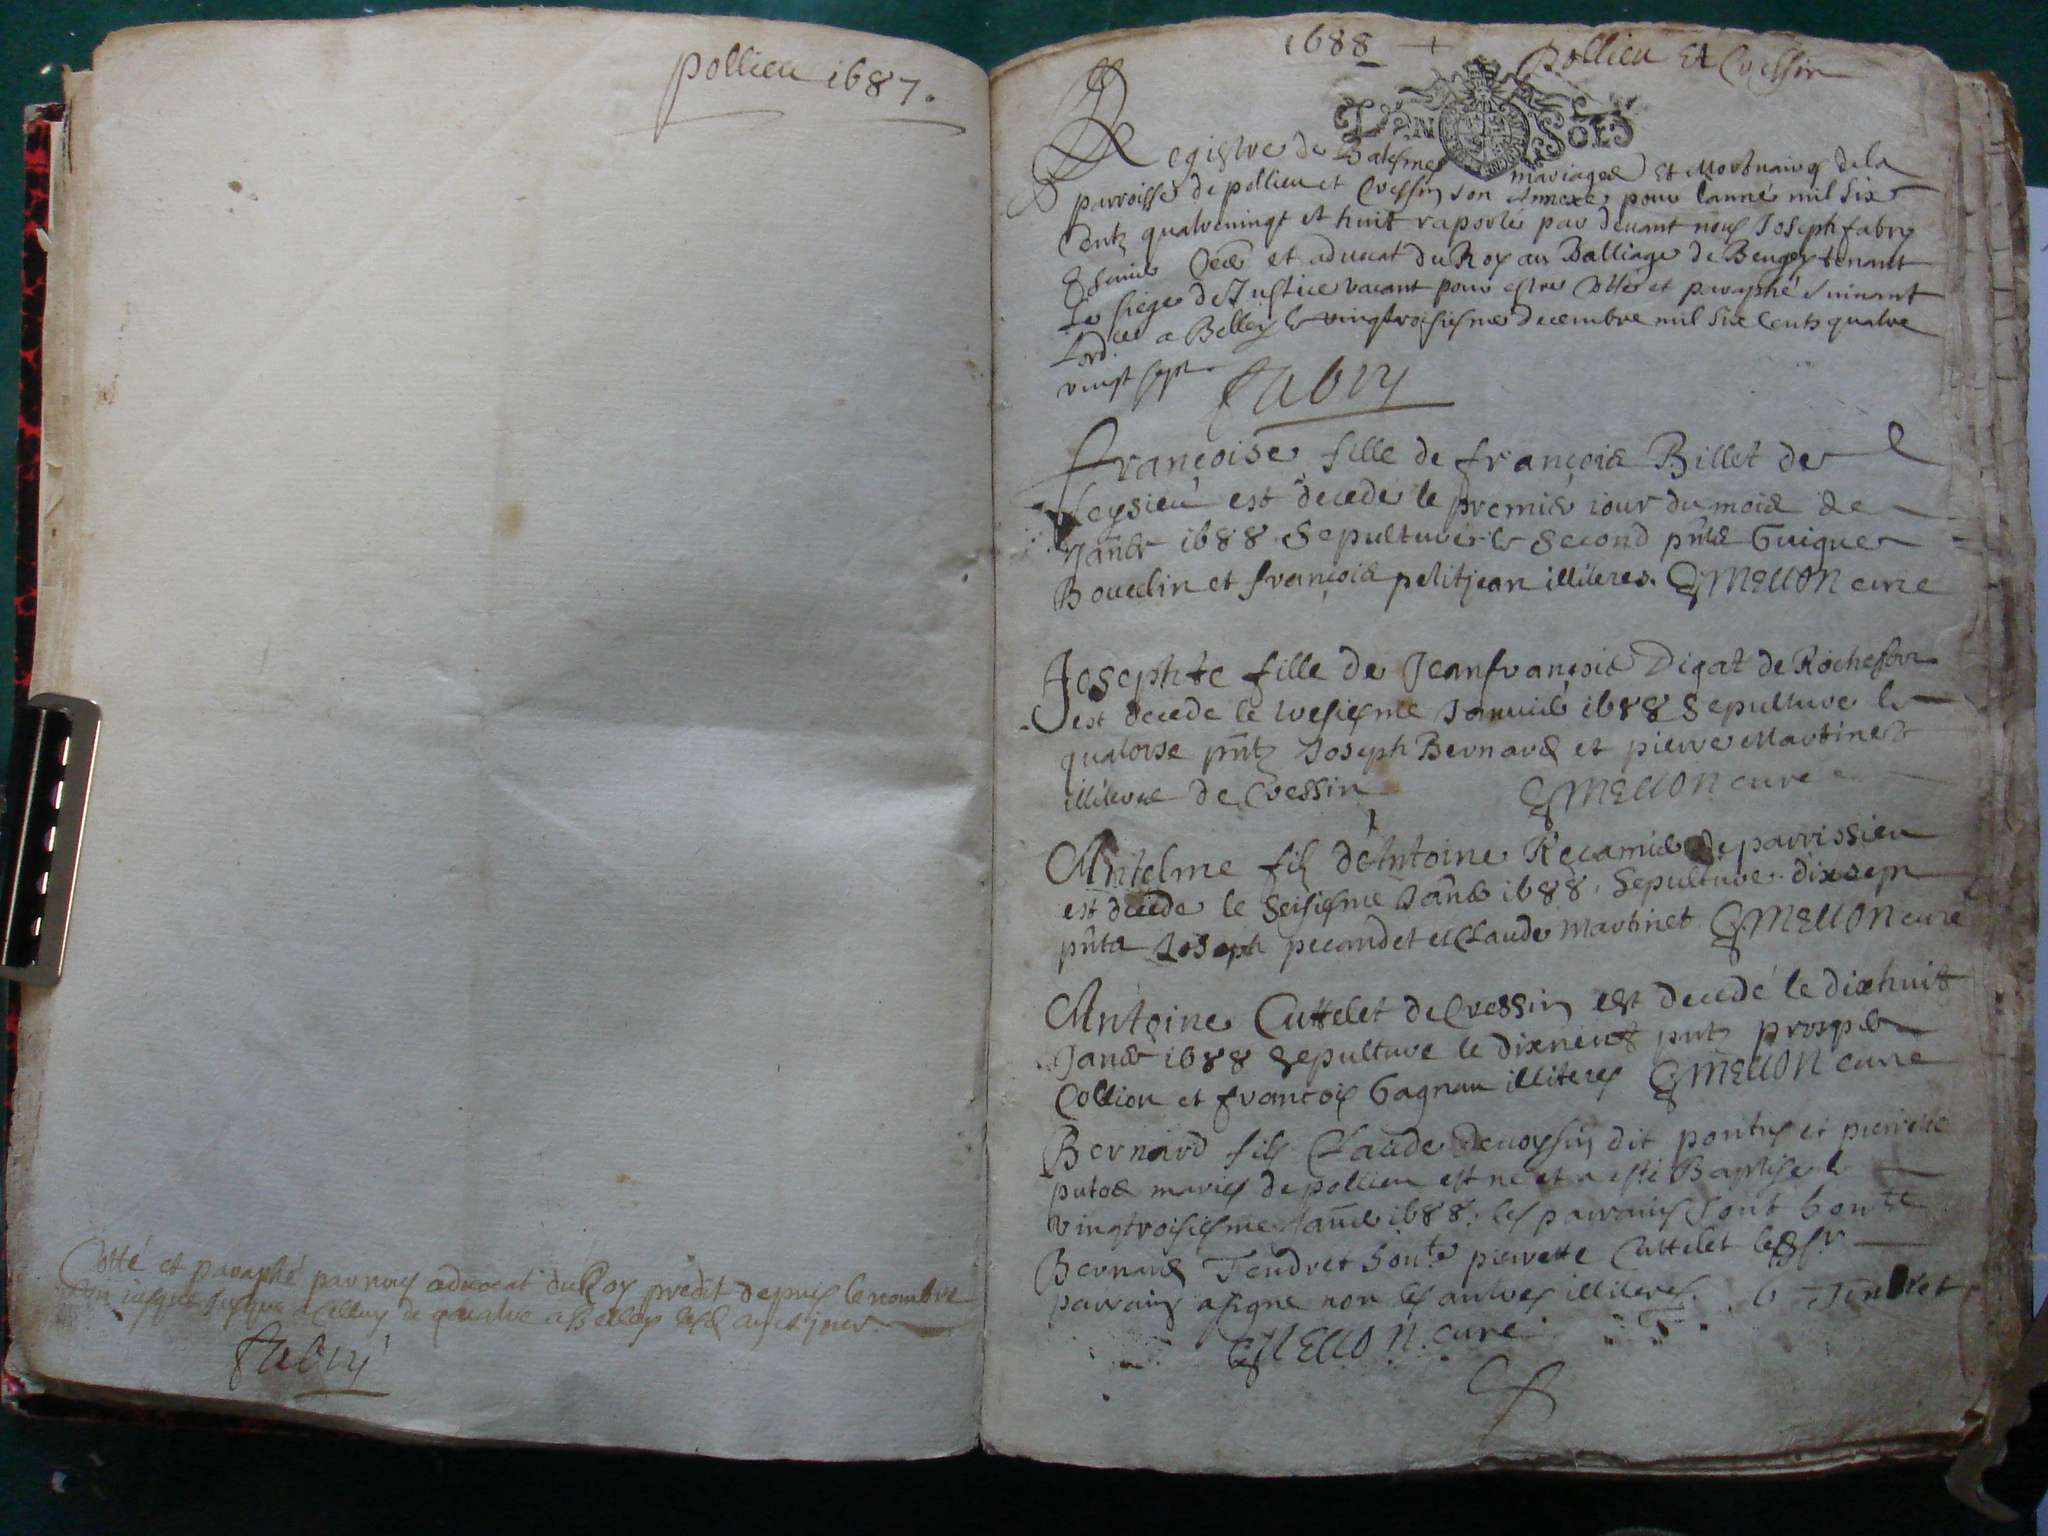 pollieu 1687.
Cotté et paraphé par nous advocat du Roy predit depuis le nombre
un jusque celluy de quatre a Belley
fabry
1688
pollieu Et Cressin
DEN SOLS
Registre de Batesmes mariages Et Mortuaires dela
parroisse de pollieu et Cressin son Annexe, pour lanné mil six
Centz quatreningt et huit raporté par devant nous Joseph fabry
Escuier et advocat du Roy au Balliage de Beugey tenant
le siege de Justice vacant pour estre Cotté et paraphé suivant
Lord. a Belley le vingtroisiesme decembre mil six Cents quatre
vingt sept
fabry
françoise fille de françois Billet de
leysieu est decede le premier iour du mois de
Janer 1688 Sepulture le second pnts Guigue
Boucelin et françois petitjean illiteres. Mellon cure
Josephte fille de Jeanfrançois Digat de Rochefort
est decede le tresiesme Januier 1688 Sepulture le
quatorse pntz Joseph Bernard et pierre Martinet
illiteres de Cressin Mellon cure
Antelme filz dAntoine Recamier de parrissieu
est decede le Seisiesme Janer 1688. Sepulture. dixsept
pnts Joseph pecandet et Claude Martinet. Mellon curé
Antoine Cuttelet de Cressin est decedé le dixhuit
Janer 1688 Sepulture le dixneuf pnts prosper
Collion et françois Gagnau illiteres Mellon curé
Bernard fils Claude Devoysin dit pontus et pierrette
putod mariés de pollieu est né et a esté Baptise le
vingtroisiesme Janer 1688. les parrains sont honte
Bernard Tendret honte pierrette Cuttelet led Sr
parrain a signe non les autres illiteres. b Tendret
Mellon. cure